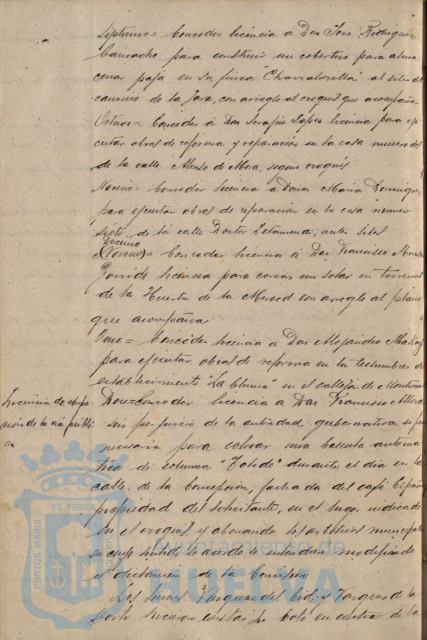 Septimo= Conceder licencia á Don José Rodriguez
Camacho para construir un cobertizo para alma-
cenar paja en su finca "Charcatorilla" al sitio del
camino de la Jara, con arreglo al croquis que acompaña
Octavo= Conceder á Don Serafin Lopez licencia para eje-
cutar obras de reforma y reparación en la casa numero dos
de la calle Alonso de Mora, segun croquis
Noveno= Conceder licencia á Doña Maria Dominguez
para ejecutar obras de reparación en la casa numero
siete de la calle Doctor Letamendi, antes Silos
Decimo
(Noveno)= Conceder licencia á Don Francisco
Garrido licencia para cercar un solar en terrenos
de la Huerta de la Merced con arreglo al plano
que acompaña
Once= Conceder licencia á Don Alejandro Mackay
para ejecutar obras de reforma en la techumbre del
establecimiento "La Chunca" en el callejon de Montrocal
Licencia de ocupa-
ción de la via públi-
ca
Doce= Conceder licencia á Don Francisco Mora
sin perjuicio de la autoridad gubernativa si fuere
necesaria para colocar una bascula automa-
tica de columna "Toledo" durante el dia en la
calle de la Concepción, fachada del café España
propiedad del solicitante, en el lugar indicado
en el croquis, y abonando los arbitrios municipales
en cuyo sentido se acordó se entendiera modificado
el dictamen de la Comisión
Los Señores Vazquez del Cid y Vazquez de la
Corte hicieron constar su voto en contra de la
PORTUS MARIS ET TERRAE
Ayuntamiento de
HUELVA